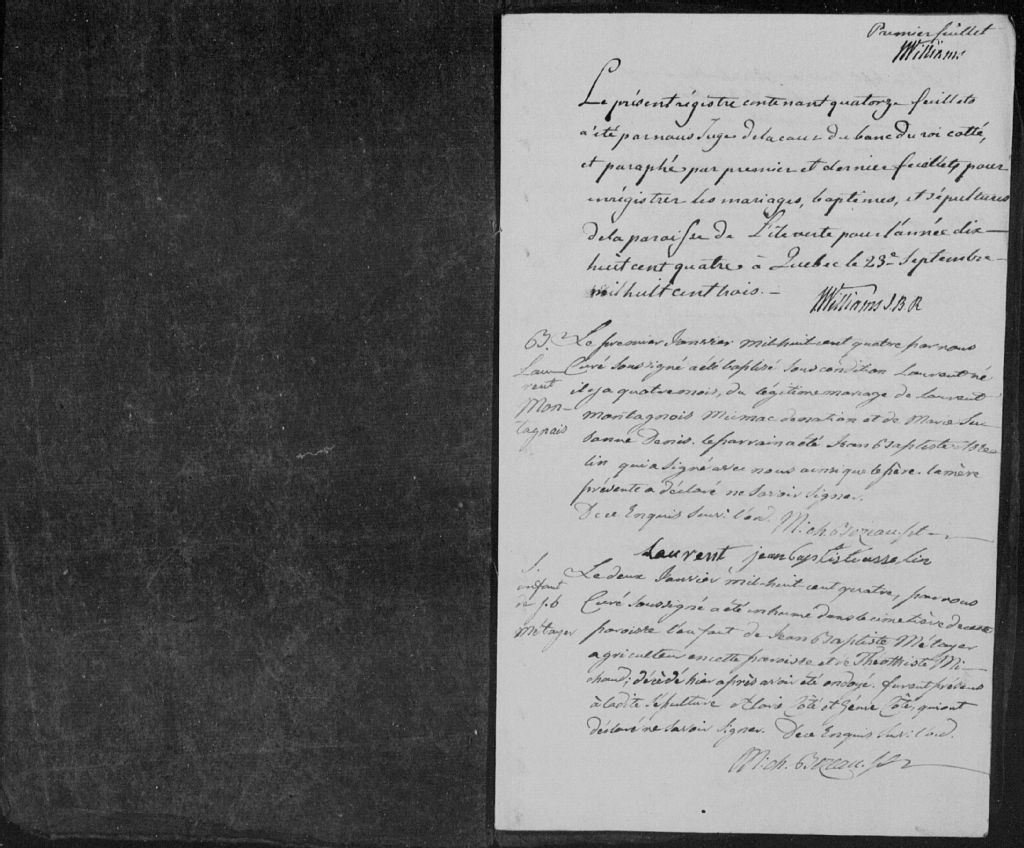 Premier feuillet
Williams
Le présent régistre contenant quatorze feuillets
a été par nous Juge de la cour du banc du roi cotté,
et paraphé par premier et dernier feuillets pour
enrégistrer les mariages, baptêmes, et sépultures
de la paroisse de L'ile verte pour l'année dix
huit cent quatre à Quebec le 23e Septembre
mil huit cent trois.
Williams J.B.R
B.
Lau
rent
Mon-
tagnais
Le premier Janvier mil-huit cent quatre par nous
Curé soussigné a été baptizé sous condition Laurent né
il y a quatre mois, du légitime mariage de Laurent
montagnois Micmac de nation et de Marie Su-
sanne Denis. le parrain a été Jean Baptiste Asse
lin qui a signé avec nous ainsi que le père. la mère
présente a déclaré ne savoir signer.
De ce Enquis suiv. l'ord.
Laurent jean baptist asselin
S.
enfant
de J.b
Métayer
Le deux Janvier mil-huit cent quatre, par nous
Curé soussigné a été inhumé dans le cimetière de cette
paroisse l'enfant de Jean Baptiste Métayer
agriculteur en cette paroisse et de Théothiste Mi-
chaud; décédé hier après avoir été ondoyé. furent présens
à ladite sépulture Côté et Côté, qui ont
déclaré ne savoir signer. De ce Enquis suiv. l'ord.